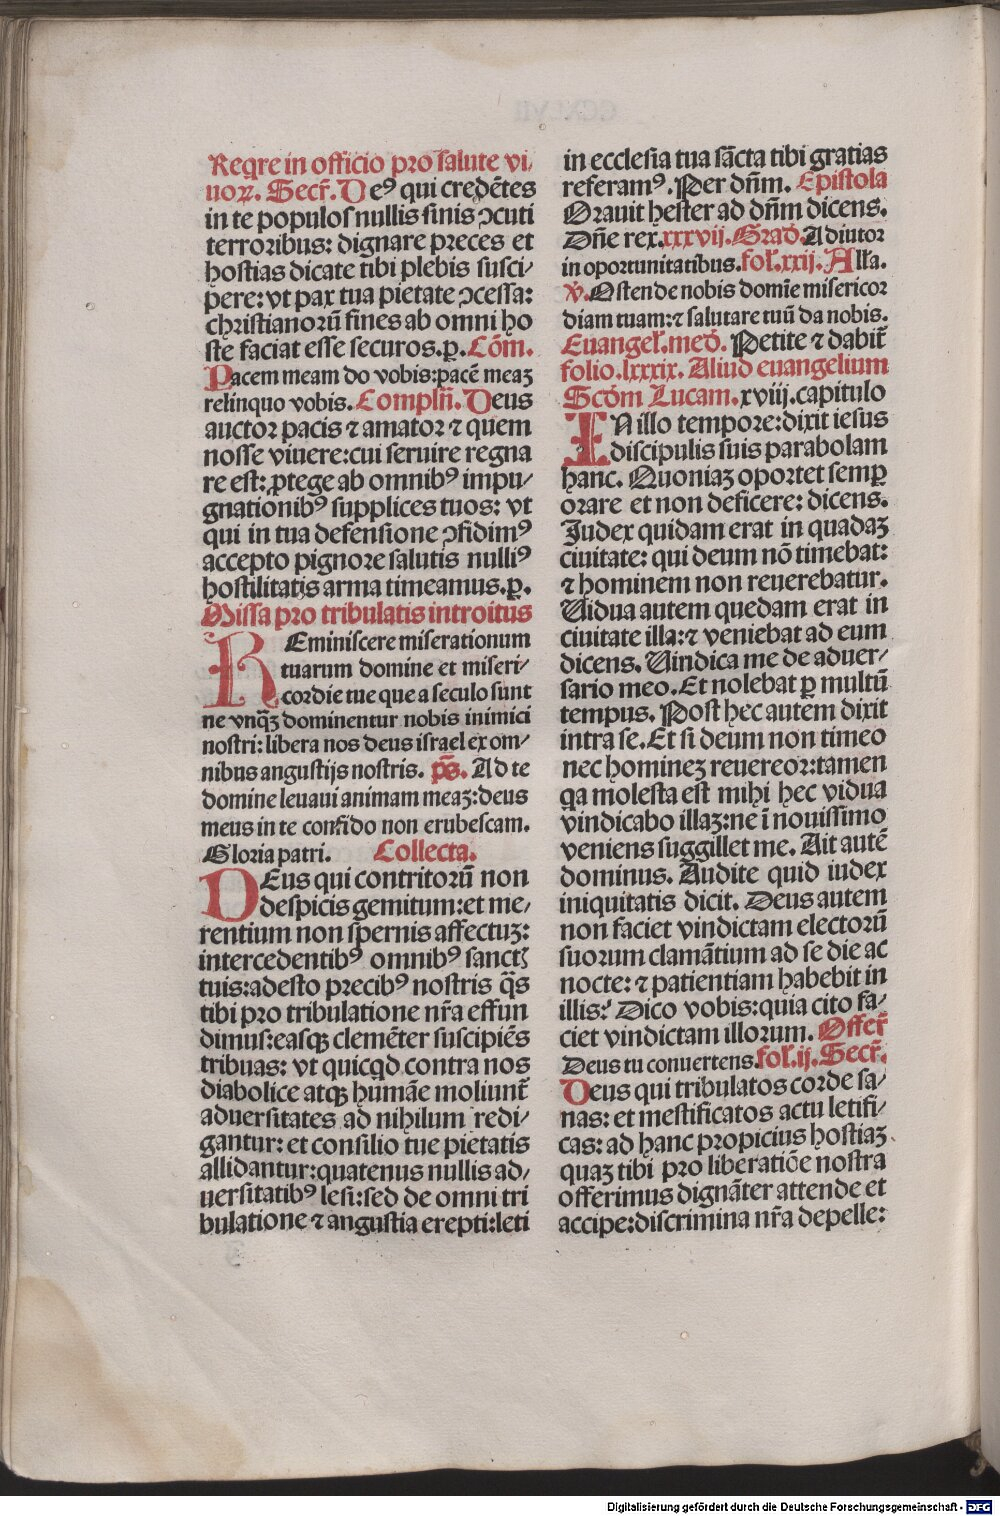 Reqre in officio pro salute vi/
uoꝝ. Secr̃. Deꝰ qui credẽtes
in te populos nullis sinis ↄcuti
terroribus: dignare preces et
hostias dicate tibi plebis susci/
pere: vt pax tua pietate ↄcessa:
christianorũ fines ab omni ho
ste faciat esse securos. p̱. Cõm.
Pacem meam do vobis: pacẽ meaꝫ
relinquo vobis. Complñ. Deus
auctor pacis ⁊ amator ⁊ quem
nosse viuere: cui seruire regna
re est: ꝓtege ab omnibꝰ impu/
gnationibꝰ supplices tuos: vt
qui in tua defensione ↄfidimꝰ
accepto pignore salutis nulliꝰ
hostilitatis arma timeamus. p̱.
Missa pro tribulatis introitus
REminiscere miserationum
tuarum domine et miseri/
cordie tue que a seculo sunt
ne vnq̃ꝫ dominentur nobis inimici
nostri: libera nos deus israel ex om/
nibus angustijs nostris. p̃s. Ad te
domine leuaui animam meaꝫ: deus
meus in te confido non erubescam.
Gloria patri. Collecta.
DEus qui contritorũ non
despicis gemitum: et me/
rentium non spernis affectuꝫ:
intercedentibꝰ omnibꝰ sanctꝭ
tuis: adesto precibꝰ nostris q̃s
tibi pro tribulatione nr̃a effun
dimus: easqꝫ clemẽter suscipiẽs
tribuas: vt quicqd contra nos
diabolice atqꝫ humãe moliunt̃
aduersitates ad nihilum redi/
gantur: et consilio tue pietatis
allidantur: quatenus nullis ad/
uersitatibꝰ lesi: sed de omni tri
bulatione ⁊ angustia erepti: leti
in ecclesia tua sãcta tibi gratias
referamꝰ. Per dñm. Epistola
Orauit hester ad dñm dicens.
Dñe rex. xxxvij. Grad̃. Adiutor
in oportunitatibus. fol̃. xxij. Alla.
v̾. Ostende nobis domĩe misericor
diam tuam: ⁊ salutare tuũ da nobis.
Euangel̃. med̃. Petite ⁊ dabit̃
folio. lxxxix. Aliud euangelium
Scd̃m Lucam. xviij. capitulo
IN illo tempore: dixit iesus
discipulis suis parabolam
hanc. Quoniaꝫ oportet semꝑ
orare et non deficere: dicens.
Iudex quidam erat in quadaꝫ
ciuitate: qui deum nõ timebat:
⁊ hominem non reuerebatur.
Uidua autem quedam erat in
ciuitate illa: ⁊ veniebat ad eum
dicens. Uindica me de aduer/
sario meo. Et nolebat ꝑ multũ
tempus. Post hec autem dixit
intra se. Et si deum non timeo
nec homineꝫ reuereor: tamen
qa molesta est mihi hec vidua
vindicabo illaꝫ: ne ĩ nouissimo
veniens suggillet me. Ait autẽ
dominus. Audite quid iudex
iniquitatis dicit. Deus autem
non faciet vindictam electorũ
suorum clamãtium ad se die ac
nocte: ⁊ patientiam habebit in
illis: Dico vobis: quia cito fa/
ciet vindictam illorum. Offer̃
Deus tu conuertens. fol̃. ij. Secr̃.
Deus qui tribulatos corde sa/
nas: et mestificatos actu letifi/
cas: ad hanc propicius hostiaꝫ
quaꝫ tibi pro liberatiõe nostra
offerimus dignãter attende et
accipe: discrimina nr̃a depelle:
Digitalisierung gefördert durch die Deutsche Forschungsgemeinschaft - DFG